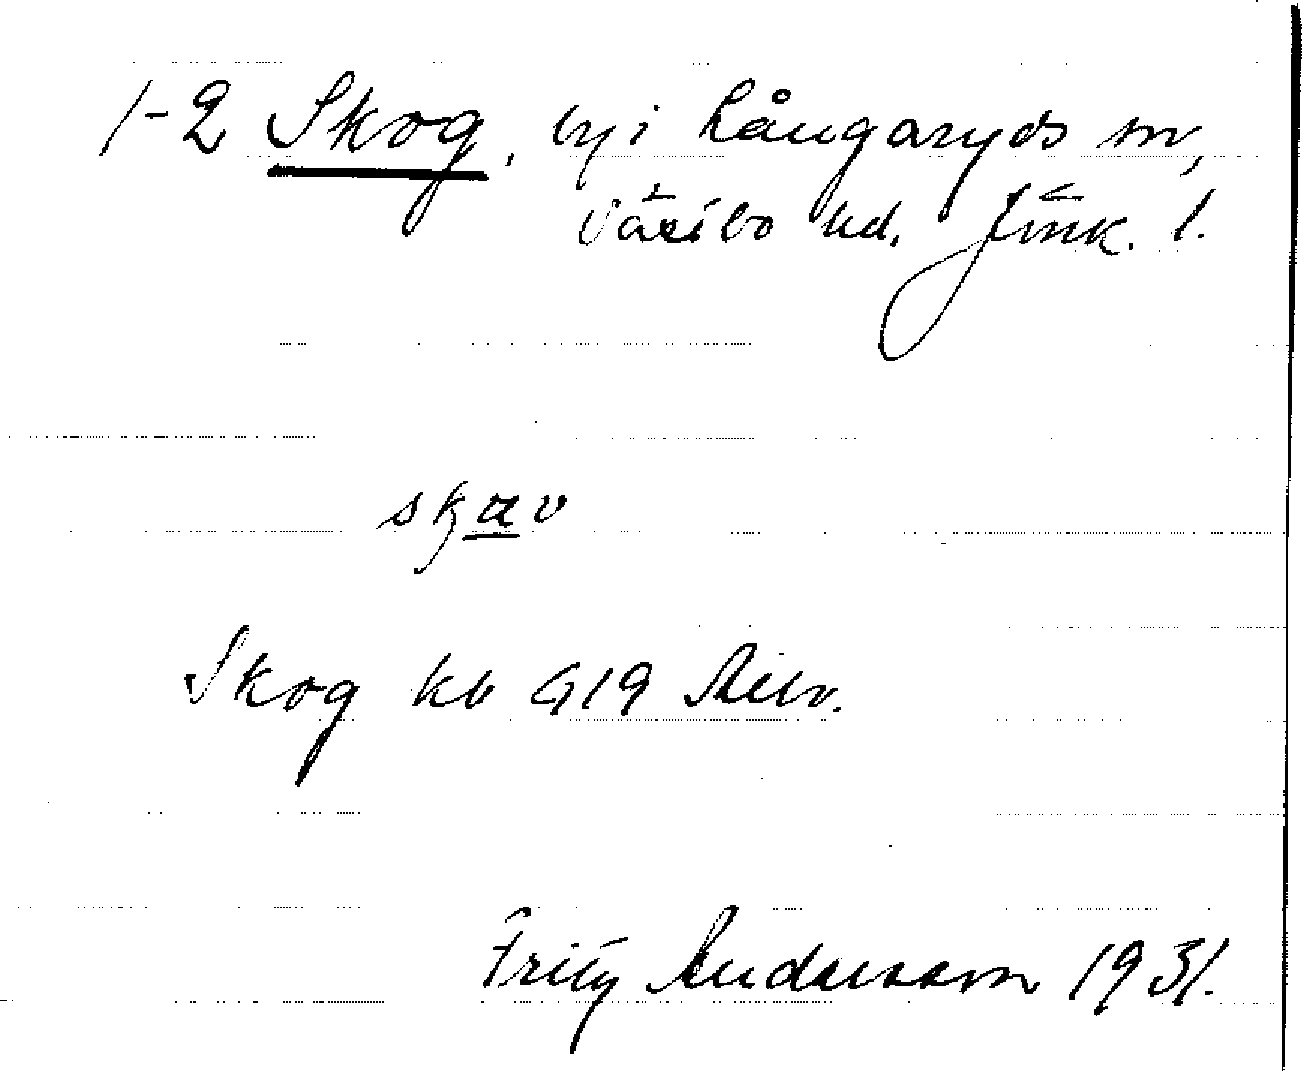 1-2 Skog, by i Långaryds sn,
Västbo hd, Jönk. l.
skav
Skog kb G19 Reby.
Fritz Andersson 1931.